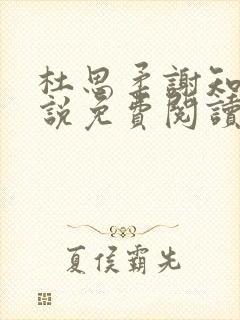 杜思柔謝知
說免費閱讀
夏侯霸先